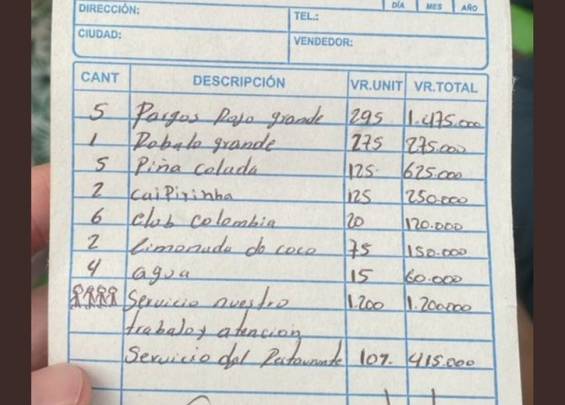 DIRECCIÓN:
TEL.:
DÍA MES AÑO
CIUDAD:
VENDEDOR:
CANT DESCRIPCIÓN VR.UNIT VR.TOTAL
5 Pargos Rojo grande 295 1.475.000
1 Robalo grande 275 275.000
5 Piña colada 125 625.000
2 Caipirinha 125 250.000
6 Club colombia 20 120.000
2 Limonada de coco 75 150.000
4 agua 15 60.000
Servicio nuestro 1.200 1.200.000
trabalo y atencion
Servicio del Restaurante 10%. 415.000